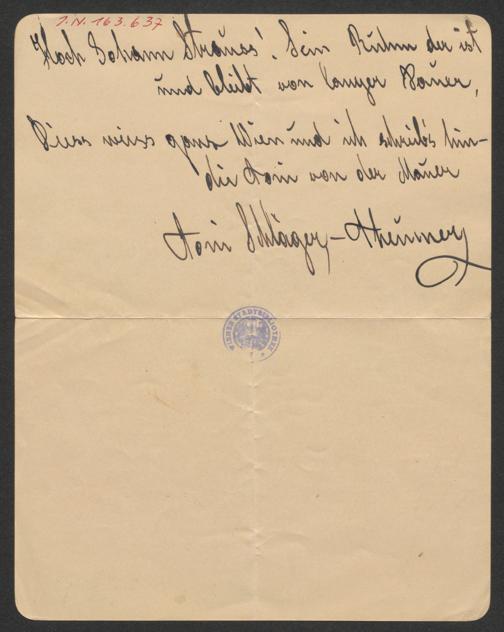 I.N. 163.637
"Hoch Johann Strauss! Sein Ruhm der ist
und bleibt von langer Dauer,
Diess weiss ganz Wien und ich schreib's hin–
die Toni von der Mauer
Toni Schläger,–Theumer
WIENER STADTBIBLIOTHEK